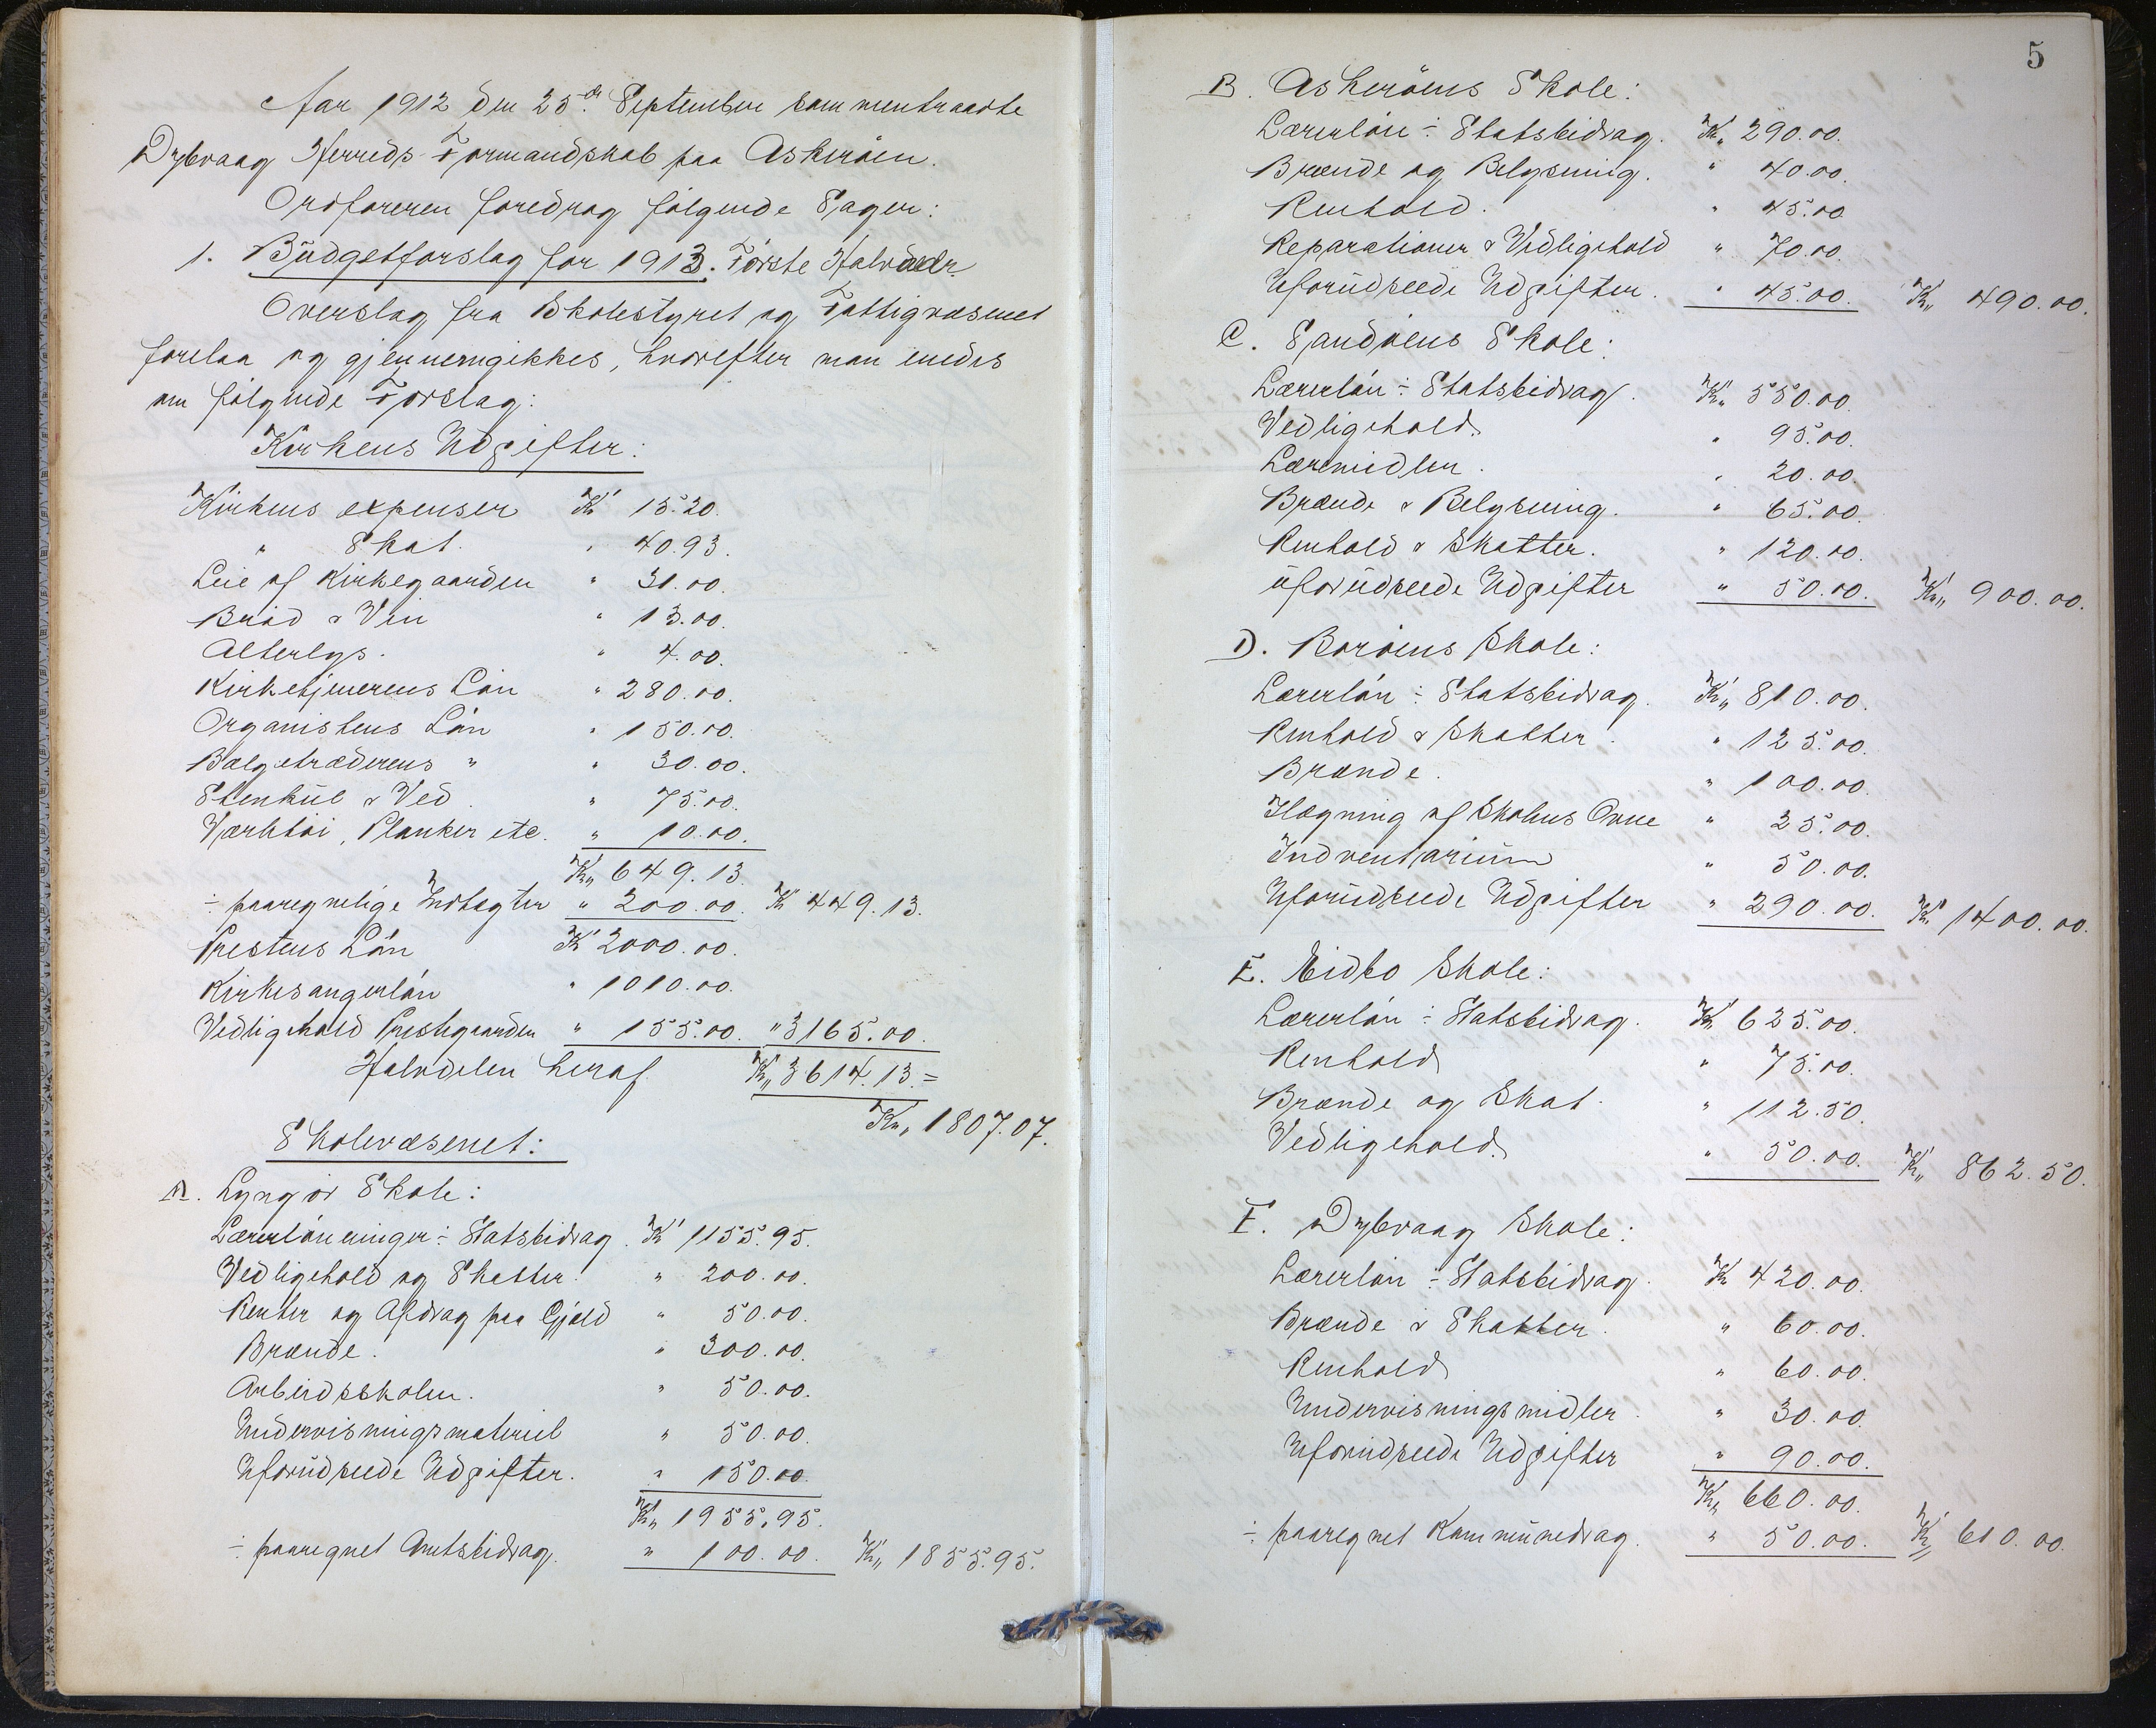 Aar 1912 den 25de September sammentraadte
Dybvaag Herreds-Formandskab paa Askerøen.
Ordføreren foredrog følgende Sager:
1. Budgetforslag for 1913. Første Halvaar
Overslag fra Skolestyret og Fattigvæsenet
forelaa og gjennemgikkes, hvorefter man enedes
om følgende Forslag:
Kirkens Udgifter:
Kirkens expenser Kr 15.20.
" Skat. " 40.93.
Leie af Kirkegaarden " 31.00.
Brød & Vin " 13.00.
Alterlys. " 4.00.
Kirketjenerens Løn " 280.00.
Organistens Løn " 150.00.
Bælgetræderens " " 30.00.
Stenkul & Ved. " 75.00.
Værktøi, Planker etc. " 10.00.
Kr. 649.13
÷ paaregnelige Indtægter " 200.00. Kr 449.13.
Prestens Løn Kr 2000.00.
Kirkesangerløn " 1010.00.
Vedligehold Prestegaarden " 155.00. " 3165.00.
Halvdelen heraf. Kr. 3614.13. =
Kr. 1807.07.
Skolevæsenet:
A. Lyngør Skole:
Lærerlønninger ÷ Statsbidrag. Kr 1155.95.
Vedligehold og Skatter. " 200.00.
Renter og Afdrag paa Gjæld " 50.00.
Brænde. " 300.00.
Arbeidsskolen. " 50.00.
Undervisningsmateriel " 50.00.
Uforudseede Udgifter. " 150.00.
Kr. 1955.95.
÷ paaregnet Amtsbidrag. " 100.00. Kr. 1855.95.
5
B. Askerøens Skole:
Lærerløn ÷ Statsbidrag. Kr. 290.00.
Brænde og Belysning. " 40.00.
Renhold. " 45.00
Reparationer & Vedligehold " 70.00.
Uforudseede Udgifter. " 45.00. Kr. 490.00.
C. Sandøens Skole:
Lærerløn ÷ Statsbidrag. Kr. 550.00.
Vedligehold. " 95.00.
Læremidler. " 20.00.
Brænde & Belysning. " 65.00.
Renhold & Skatter. " 120.00.
Uforudseede Udgifter " 50.00. Kr. 900.00.
D. Borøens Skole:
Lærerløn ÷ Statsbidrag. Kr. 810.00.
Renhold & Skatter. " 125.00.
Brænde. " 100.00.
Ilægning af Skolens Ovne " 25.00.
Indventarium " 50.00.
Uforudseede Udgifter " 290.00. Kr. 1400.00.
E. Eidbo Skole:
Lærerløn ÷ Statsbidrag. Kr 625.00.
Renhold " 75.00.
Brænde og Skat. " 112.50.
Vedligehold. " 50.00. Kr. 862.50.
F. Dybvaag Skole:
Lærerløn ÷ Statsbidrag. Kr 420.00.
Brænde & Skatter. " 60.00.
Renhold " 60.00.
Undervisningsmidler. " 30.00.
Uforudseede Udgifter " 90.00.
Kr. 660.00.
÷ paaregnet Kommunedrag. " 50.00. Kr. 610.00.